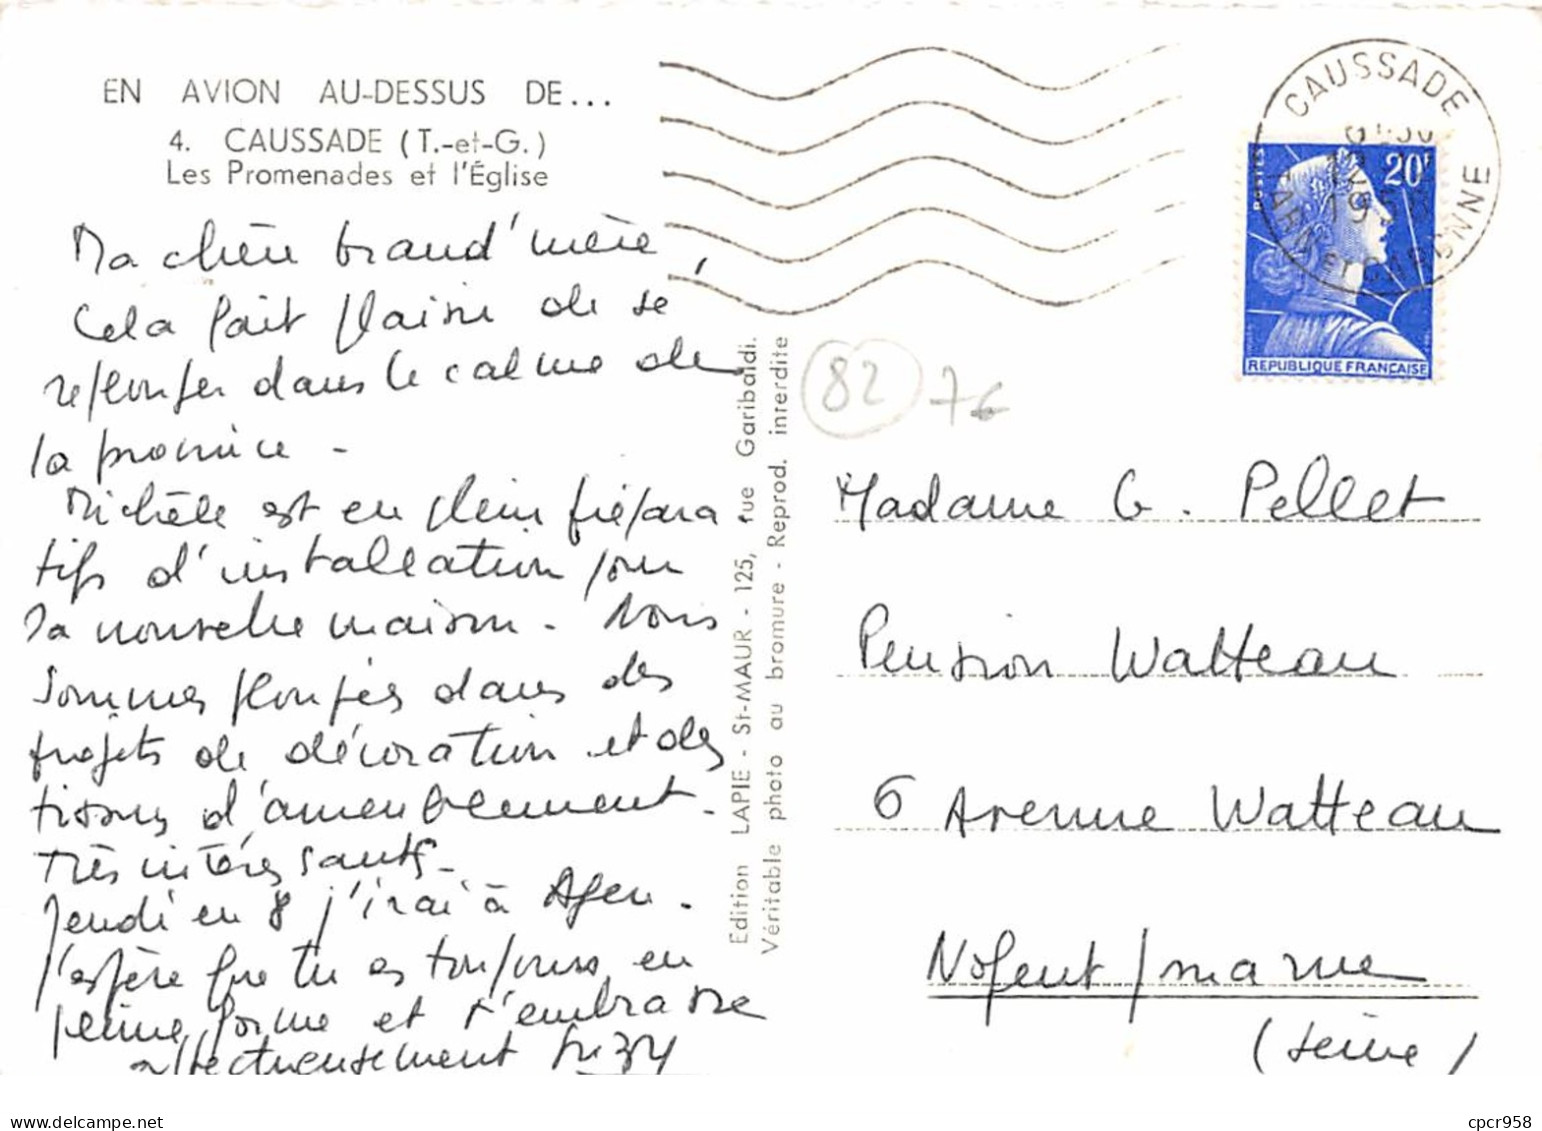 EN AVION AU-DESSUS DE...
4. CAUSSADE (T.-et-G.)
Les Promenades et l'Église
Ma chère Grand'mère,
Cela fait plaisir de se
replonger dans le calme de
la province -
Michèle est en plein prépara
tifs d'installation pour
sa nouvelle maison - Nous
sommes plongés dans des
projets de décoration et des
tissus d'ameublement -
Très intéressants -
Jeudi en 8 j'irai à Agen -
J'espère que tu es toujours en
pleine forme et t'embrasse
affectueusement Suzy
Edition LAPIE - St-MAUR - 125, rue Garibaldi.
Véritable photo au bromure - Reprod. interdite
CAUSSADE
TARN ET GARONNE
POSTES
20F
REPUBLIQUE FRANÇAISE
82 76
Madame G. Pellet
Pension Watteau
6 Avenue Watteau
Nogent / marne
(Seine)
www.delcampe.net
cpcr958